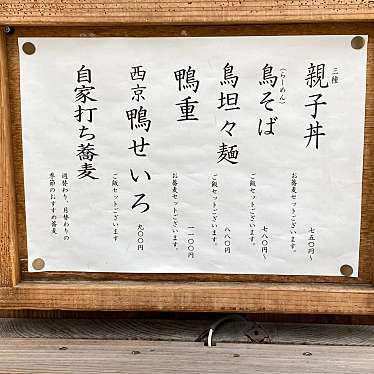 三種
親子丼
お蕎麦セットございます。
七五〇〜
鳥そば
(らーめん)
ご飯セットございます。
七八〇〜
鳥坦々麺
ご飯セットございます。
八八〇
鴨重
お蕎麦セットございます。
一一〇〇円
西京 鴨せいろ
ご飯セットございます
九〇〇円
自家打ち蕎麦
週替わり、月替わりの
季節のおすすめ蕎麦